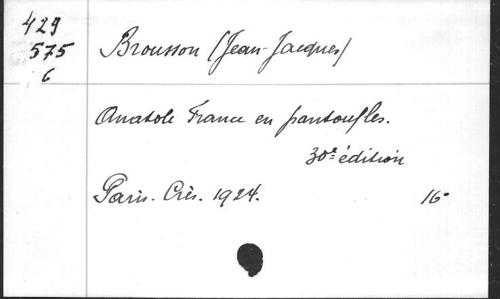 429
575
6
Brousson (Jean-Jacques)
Anatole France en pantoufles.
30e édition
Paris. Crès. 1924. 16°